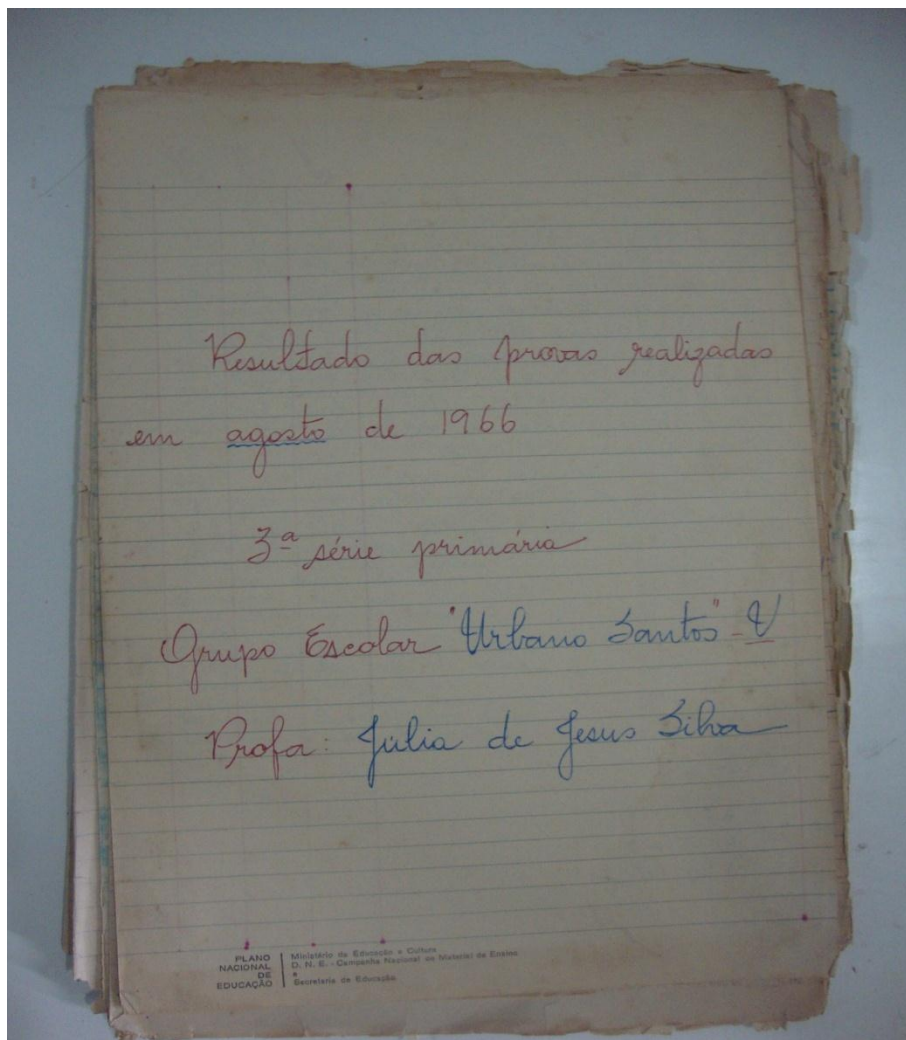 Resultado das provas realizadas
em agosto de 1966
3ª série primária
Grupo Escolar "Urbano Santos" - V
Profa: Júlia de Jesus Silva
PLANO
NACIONAL
DE
EDUCAÇÃO
Ministério da Educação e Cultura
D. N. E. - Campanha Nacional de Material de Ensino
e
Secretaria de Educação